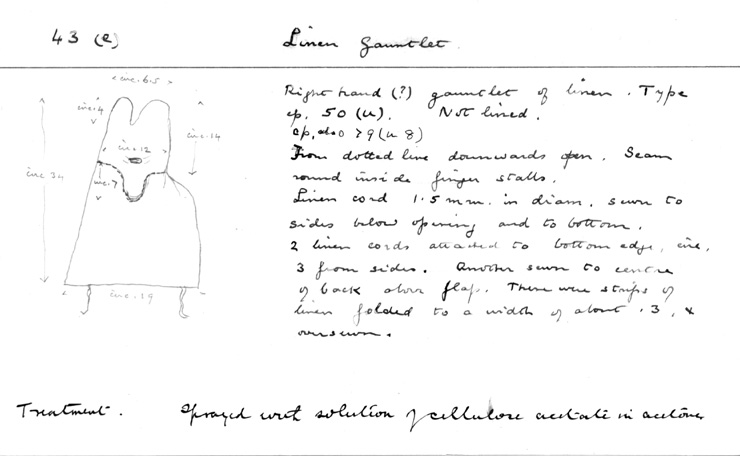 43 (e)
Linen Gauntlet.
circ. 6.5
circ. 4
circ. 14
circ. 12
circ. 34
circ. 7
circ. 19
Right hand (?) gauntlet of linen. Type
cp. 50 (u). Not lined.
cp. also 79 (u 8)
From dotted line downwards open. Seam
round inside finger stalls.
Linen cord 1.5 mm. in diam. sewn to
sides below opening and to bottom.
2 linen cords attached to bottom edge, circ.
3 from sides. Another sewn to centre
of back above flap. These were strips of
linen folded to a width of about .3, &
oversewn.
Treatment. Sprayed with solution of cellulose acetate in acetone